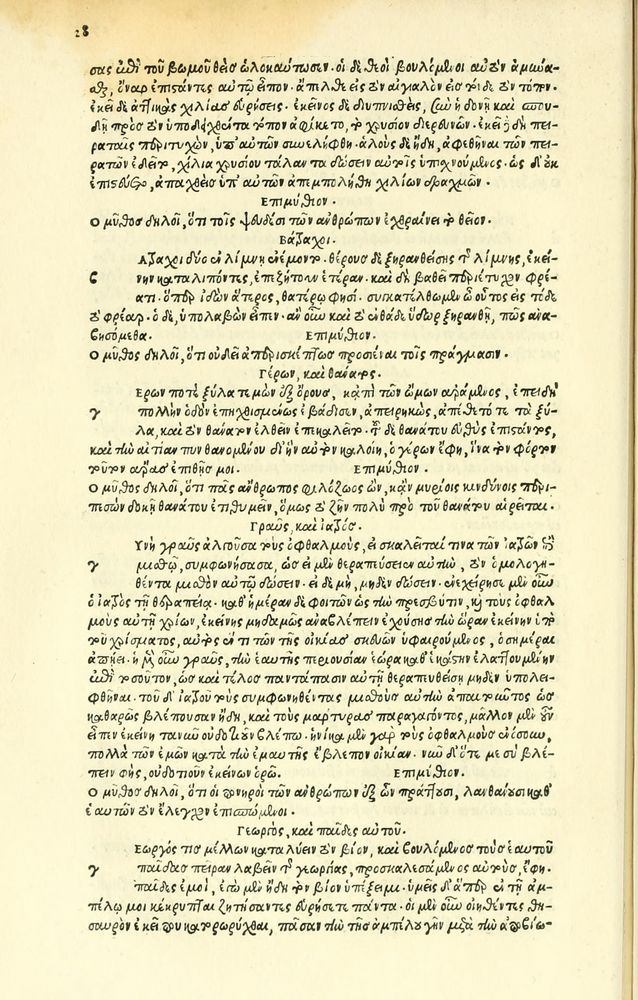 28
σας ἐπὶ τοῦ βωμοῦ βοῦς ὡλοκαύτωσεν. οἱ δὲ θεοὶ βουλόμενοι αὐτὸν ἀμύνα-
σθαι, ὄναρ ἐπιστάντες αὐτῷ εἶπον. ἄπιθι εἰς τὸν αἰγιαλὸν εἰς τόνδε τὸν τόπον.
ἐκεῖ δὲ ἀττικὰς χιλίας εὑρήσεις. ἐκεῖνος δὲ διυπνισθείς, σὺν ἡδονῇ καὶ σπου-
δῇ πρὸς τὸν ὑποδειχθέντα τόπον ἀφίκετο, τὸ χρυσίον διερευνῶν. ἐκεῖ δὴ δὲ πει-
ραταῖς περιτυχών, ὑπ' αὐτῶν συνελήφθη. ἁλοὺς δὲ ἤδη, ἀφεθῆναι τῶν πει-
ρατῶν ἐδεῖτο, χίλια χρυσίου τάλαντα δώσειν αὐτοῖς ὑπισχνούμενος. ὡς δ' οὐκ
ἐπιστεύετο, ἀπαχθεὶς ὑπ' αὐτῶν ἀπεμπολήθη χιλίων δραχμῶν.
Επιμύθιον.
Ο μῦθος δηλοῖ, ὅτι τοῖς ψευδέσι τῶν ἀνθρώπων ἐχθραίνει τὸ θεῖον.
Βάτραχοι.
Ατραχοι δύο ἐν λίμνῃ ἐνέμοντο. θέρους δὲ ξηρανθείσης τῆς λίμνης, ἐκεί-
β νην καταλιπόντες, ἐπεζήτουν ἑτέραν. καὶ δὴ βαθεῖ περιέτυχον φρέ-
ατι. ὅπερ ἰδὼν ἅτερος, θατέρῳ φησί. συγκατέλθωμεν ὦ οὗτος εἰς τόδε
τὸ φρέαρ. ὁ δὲ, ὑπολαβὼν εἶπεν. ἂν οὖν καὶ τὸ ἐνθάδε ὕδωρ ξηρανθῇ, πῶς ἀνα-
βησόμεθα. Επιμύθιον.
Ο μῦθος δηλοῖ, ὅτι οὐ δεῖ ἀπερισκέπτως προσιέναι τοῖς πράγμασιν.
Γέρων, καὶ θάνατος.
Ερων ποτὲ ξύλα τεμὼν ἐξ ὄρους, κἀπὶ τῶν ὤμων ἀράμενος, ἐπειδὴ
γ πολλὴν ὁδὸν ἐπηχθισμένος ἐβάδισεν, ἀπειρηκώς, ἀπέθετό τε τὰ ξύ-
λα, καὶ τὸν θάνατον ἐλθεῖν ἐπεκαλεῖτο. τοῦ δὲ θανάτου εὐθὺς ἐπιστάντος,
καὶ τὴν αἰτίαν πυνθανομένου δι' ἣν αὐτὸν καλοίη, ὁ γέρων ἔφη, ἵνα τὸν φόρτον
τοῦτον ἄρας ἐπιθῇς μοι. Επιμύθιον.
Ο μῦθος δηλοῖ, ὅτι πᾶς ἄνθρωπος φιλόζωος ὢν, κἂν μυρίοις κινδύνοις περι-
πεσὼν δοκῇ θανάτου ἐπιθυμεῖν, ὅμως τὸ ζῆν πολὺ πρὸ τοῦ θανάτου αἱρεῖται.
Γραῦς, καὶ ἰατρός.
Υνὴ γραῦς ἀλγοῦσα τοὺς ὀφθαλμούς, εἰσκαλεῖταί τινα τῶν ἰατρῶν ἐπὶ
γ μισθῷ, συμφωνήσασα, ὡς εἰ μὲν θεραπεύσειεν αὐτήν, τὸν ὁμολογη-
θέντα μισθὸν αὐτῷ δώσειν. εἰ δὲ μή, μηδὲν δώσειν. ἐνεχείρησε μὲν οὖν
ὁ ἰατρὸς τῇ θεραπείᾳ. καθ' ἡμέραν δὲ φοιτῶν ὡς τὴν πρεσβῦτιν, καὶ τοὺς ὀφθαλ
μοὺς αὐτῇ χρίων, ἐκείνης μηδαμῶς ἀναβλέπειν ἐχούσης τὴν ὥραν ἐκείνην ὑπὸ
τοῦ χρίσματος, αὐτὸς ἕν τι τῶν τῆς οἰκίας σκευῶν ὑφαιρούμενος, ὁσημέραι
ἀπῄει. ἡ μὲν οὖν γραῦς, τὴν ἑαυτῆς περιουσίαν ἑώρα καθ' ἑκάστην ἐλαττουμένην
ἐπὶ τοσοῦτον, ὡς καὶ τέλος παντάπασιν αὐτῇ θεραπευθείσῃ μηδὲν ὑπολει-
φθῆναι. τοῦ δ' ἰατροῦ τοὺς συμφωνηθέντας μισθοὺς αὐτὴν ἀπαιτοῦντος ὡς
καθαρῶς βλέπουσαν ἤδη, καὶ τοὺς μάρτυρας παραγαγόντος, μᾶλλον μὲν οὖν
εἶπεν ἐκείνη τανῦν οὐδοτιοῦν βλέπω. ἡνίκα μὲν γὰρ τοὺς ὀφθαλμοὺς ἐνόσουν,
πολλὰ τῶν ἐμῶν κατὰ τὴν ἐμαυτῆς ἔβλεπον οἰκίαν. νῦν δ' ὅτε με σὺ βλέ-
πειν φῄς, οὐδοτιοῦν ἐκείνων ὁρῶ. Επιμύθιον.
Ο μῦθος δηλοῖ, ὅτι οἱ πονηροὶ τῶν ἀνθρώπων ἐξ ὧν πράττουσι, λανθάνουσι καθ'
ἑαυτῶν τὸν ἔλεγχον ἐπισπώμενοι.
Γεωργός, καὶ παῖδες αὐτοῦ.
Εωργός τις μέλλων καταλύειν τὸν βίον, καὶ βουλόμενος τοὺς ἑαυτοῦ
γ παῖδας πεῖραν λαβεῖν τῆς γεωργίας, προσκαλεσάμενος αὐτούς, ἔφη.
παῖδες ἐμοί, ἐγὼ μὲν ἤδη τὸν βίον ὑπέξειμι. ὑμεῖς δ' ἅπερ ἐν τῇ ἀμ-
πέλῳ μοι κέκρυπται ζητήσαντες εὑρήσετε πάντα. οἱ μὲν οὖν οἰηθέντες θη-
σαυρὸν ἐκεῖ που κατορωρύχθαι, πᾶσαν τὴν τῆς ἀμπέλου γῆν μετὰ τὴν ἀποβίω-